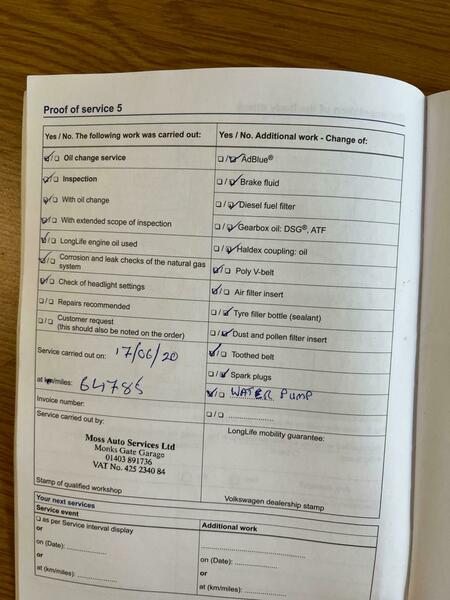 Proof of service 5
Yes / No. The following work was carried out:
Oil change service
Inspection
With oil change
With extended scope of inspection
LongLife engine oil used
Corrosion and leak checks of the natural gas
system
Check of headlight settings
Repairs recommended
Customer request
(this should also be noted on the order)
Service carried out on: 17/06/20
at km/miles: 64785
Invoice number:
Service carried out by:
Moss Auto Services Ltd
Monks Gate Garage
01403 891736
VAT No. 425 2340 84
Stamp of qualified workshop
Yes / No. Additional work - Change of:
AdBlue®
Brake fluid
Diesel fuel filter
Gearbox oil: DSG®, ATF
Haldex coupling: oil
Poly V-belt
Air filter insert
Tyre filler bottle (sealant)
Dust and pollen filter insert
Toothed belt
Spark plugs
WATER PUMP
LongLife mobility guarantee:
Volkswagen dealership stamp
Your next services
Service event
as per Service interval display
or
on (Date):
or
at (km/miles):
Additional work
on (Date):
or
at (km/miles):